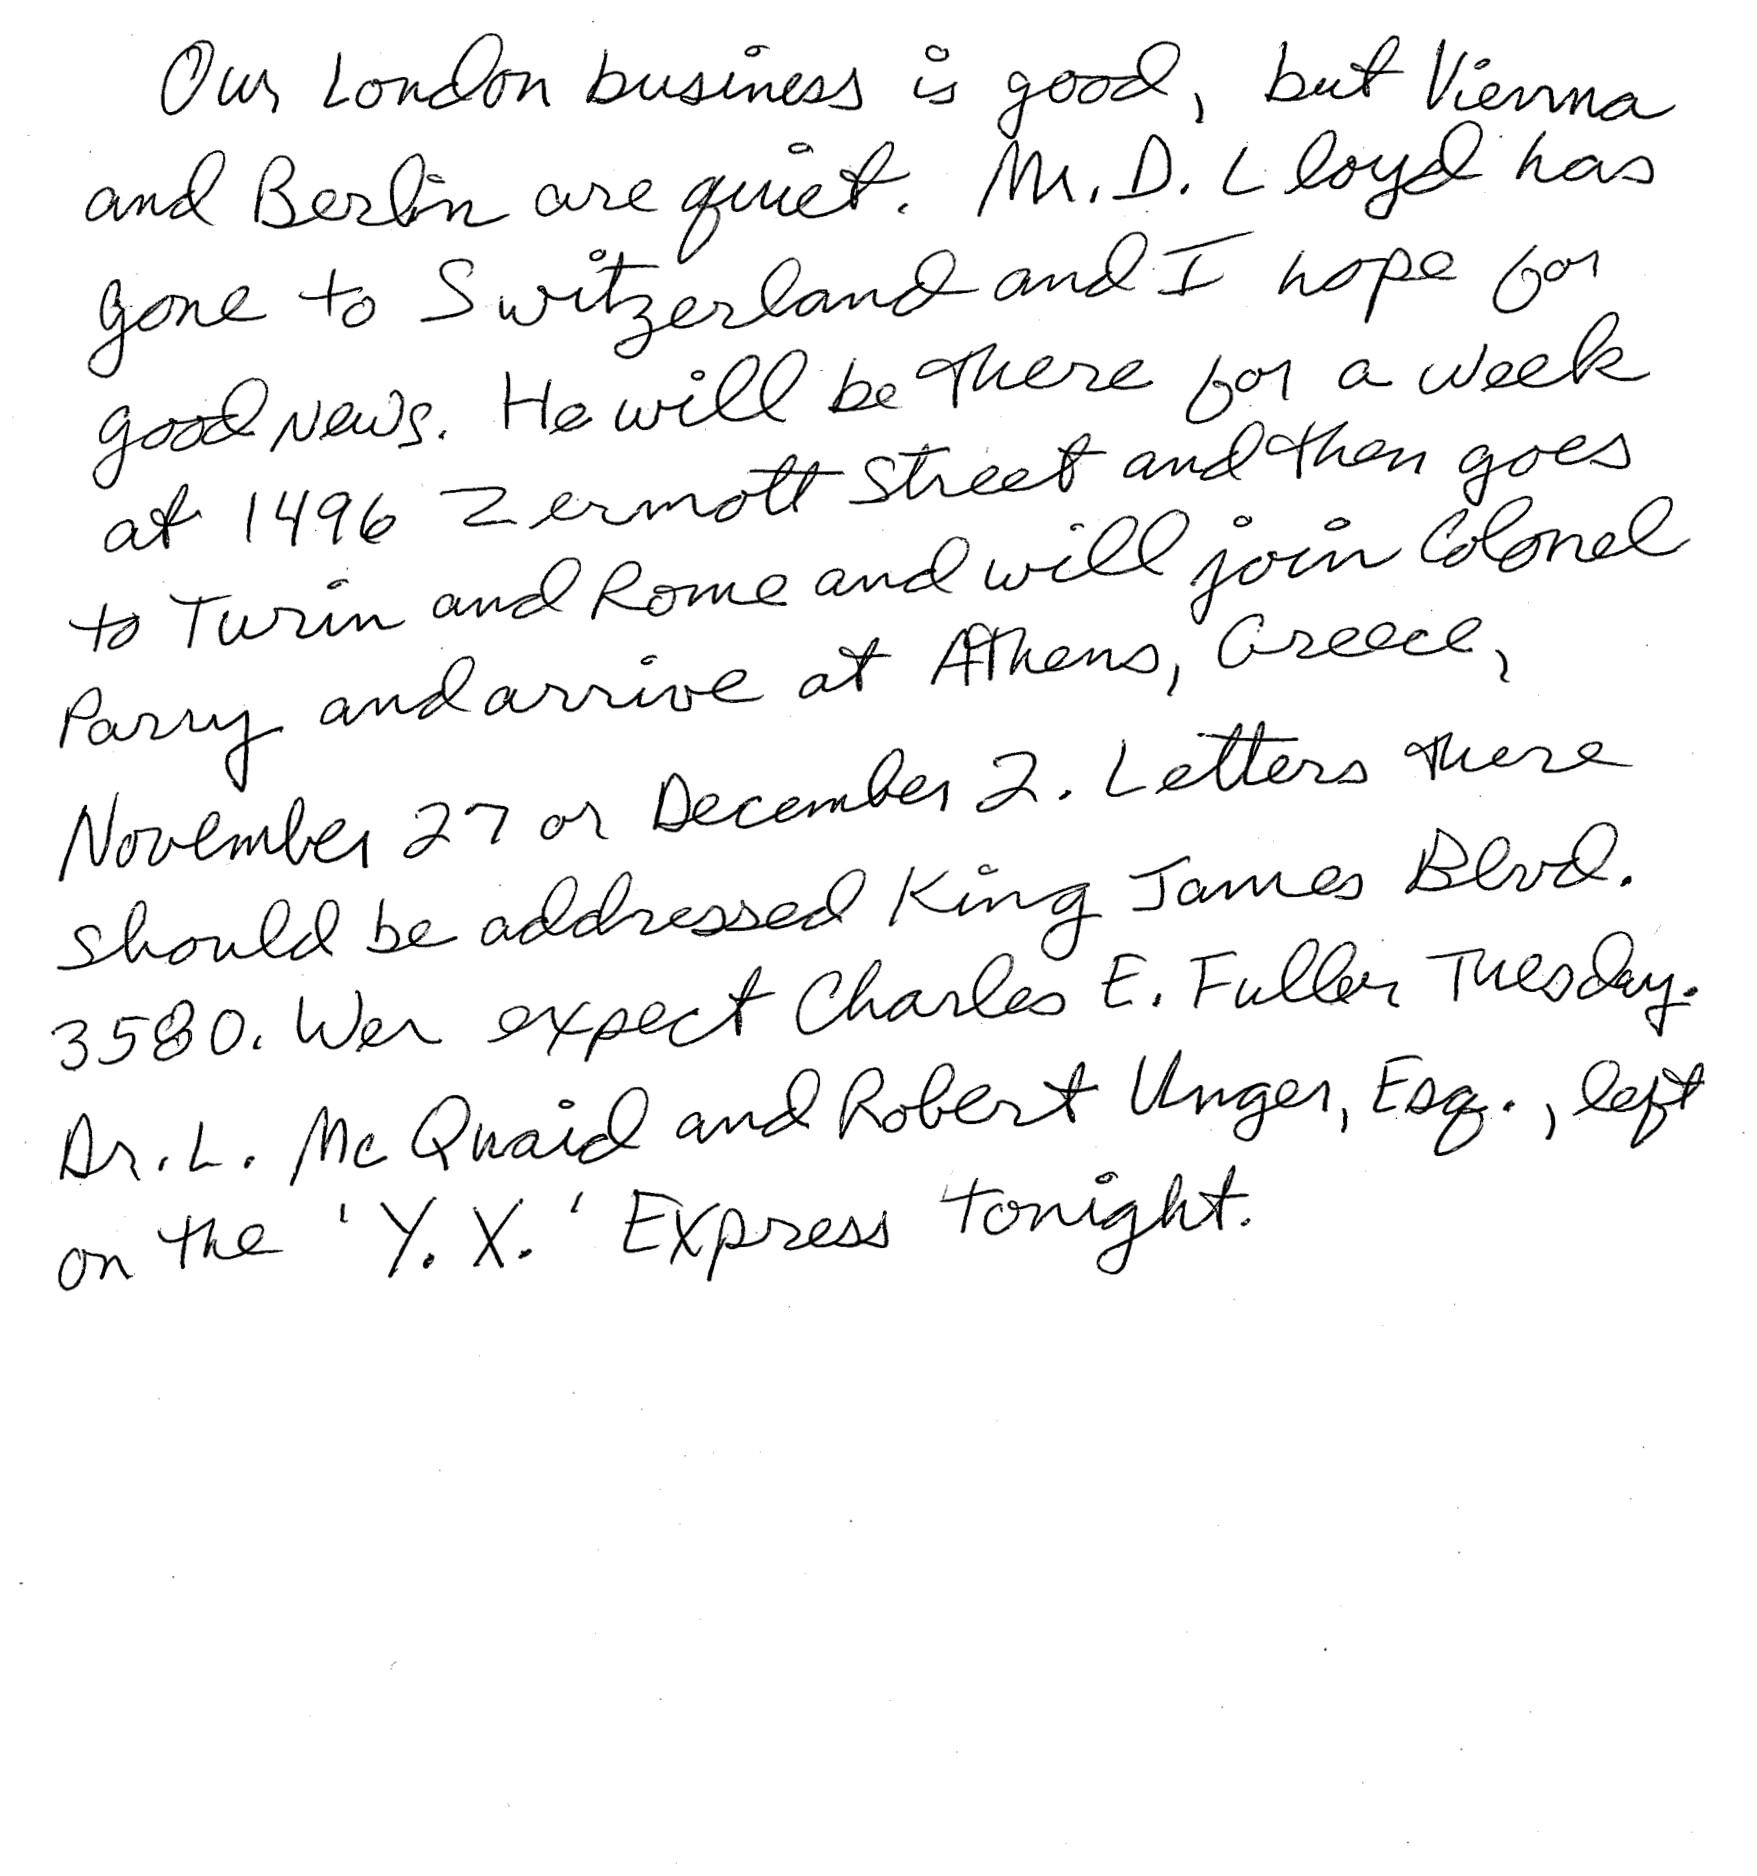 Our London business is good, but Vienna
and Berlin are quiet. Mr. D. Lloyd has
gone to Switzerland and I hope for
good news. He will be there for a week
at 1496 Zermott Street and then goes
to Turin and Rome and will join Colonel
Parry and arrive at Athens, Greece,
November 27 or December 2. Letters there
should be addressed King James Blvd.
3580. Wer expect Charles E. Fuller Tuesday.
Dr. L. McQuaid and Robert Unger, Esq., left
on the 'Y. X.' Express tonight.